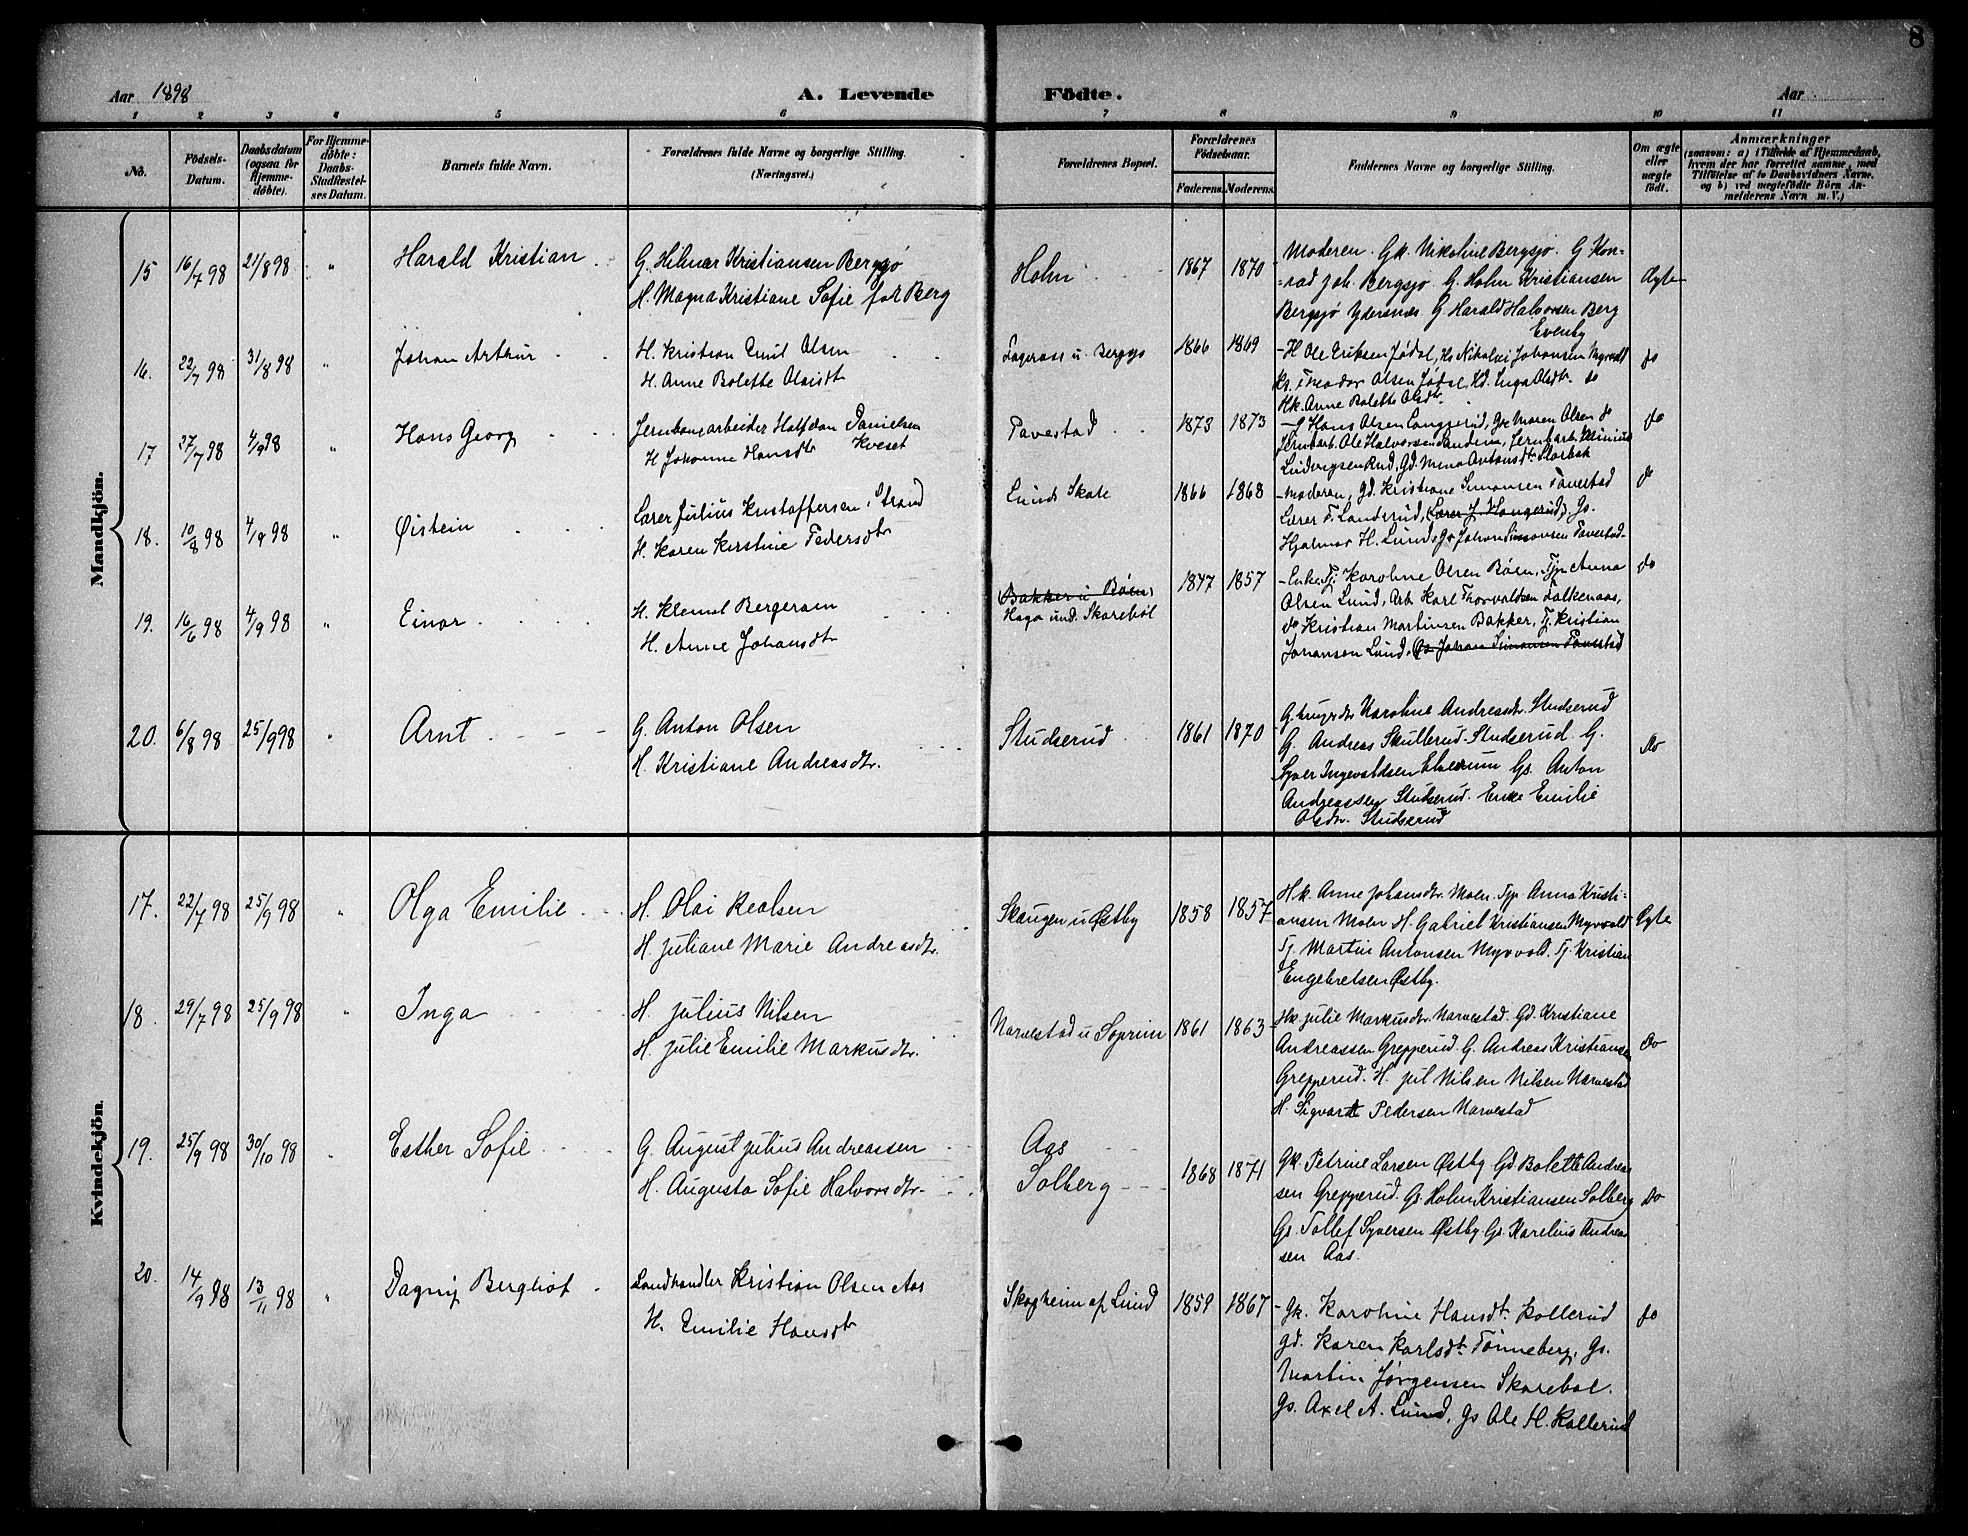 8
Aar 1898
A. Levende Födte.
Aar
1 2 3 4 5 6 7 8 9 10 11
No.
Födsels-
Datum.
Daabsdatum
(ogsaa for
Hjemme-
döbte).
For Hjemme-
döbte:
Daabs-
Stadfæstel-
ses Datum.
Barnets fulde Navn.
Forældrenes fulde Navne og borgerlige Stilling.
(Næringsvei.)
Forældrenes Bopæl.
Forældrenes
Födselsaar.
Faderens. Moderens.
Faddernes Navne og borgerlige Stilling.
Om ægte
eller
uægte
födt.
Anmærkninger
(saasom: a) i Tilfælde af Hjemmedaab,
hvem der har forrettet samme, med
Tilföielse af to Daabsvidners Navne,
og b) ved uægtefödte Börn An-
melderens Navn m. V.)
Mandkjön.
15 16/7 98 21/8 98 " Harald Kristian
G. Hilmar Kristiansen Bergsjø
H. Magna Kristiane Sofie født Berg
Holm 1867 1870
Moderen. Gk. Nikoline Bergsjø. G. Kon-
=rad Joh. Bergsjø. G. Holm Kristiansen
Bergsjø Ydersnes G. Harald Halvorsen Berg
Evenby
Ægte
16. 22/7 98 31/8 98 " Johan Arthur
H. Kristian Emil Olsen
H. Anne Bolette Olaisdt
u. Bergsjø 1866 1869
- H Ole Eriksen Jødal, Hs Nikolai Johansen Myrvold
Hs. Theodor Olsen Jødal, Hd. Inga Olsdt. do
Hk. Anne Bolette Olsdt.
do
17 27/7 98 4/9 98 " Hans Georg
Jernbanearbeider Halfdan Danielsen
H Johanne Hansdt Kveset
Tavestad 1873 1873
- G Hans Olsen Langgerud, Gk Maren Olsen do
Jernbarb. Ole Halvorsen Sandem, Jernbarb.
Ludvigsen Rud, Gd. Mina Antonsdt. Storbæk
do
18. 10/8 98 4/9 98 " Øistein
Lærer Julius Kristoffersen Strand
H. Karen Kirstine Pedersdtr
Lunds Skole 1866 1868
- Moderen, Gd. Kristiane Simonsen Tavestad
Lærer F. Landsrud, (Lærer J. Haugerud), Gs.
Hjalmar H. Lund, Gs Johan Simonsen Tavestad.
do
19. 16/6 98 4/9 98 " Einar
H. Klemet Bergersen
H. Anne Johansdtr
(Bakker u Bøen)
Haga und. Skarebøl 1847 1857
- Enke Tj Karoline Olsen Bøen, Typ Anna
Olsen Lund, Arb. Karl Thorvaldsen Falkenaas,
do Kristian Martinsen Bakker, Tj. Kristian
Johansen Lund. (Gs Johan Simonsen Tavestad
do
20. 6/8 98 25/9 98 " Arnt
G. Anton Olsen
H. Kristiane Andreasdtr.
Studserud 1861 1870
Karoline Andreasdtr. Studserud
G. Andreas Skullerud-Studserud. G.
Syver Ingevaldsen Elverum Gs. Anton
Andreassen Studserud. Enke Emilie
Olsdtr. Studserud
do
Kvindekjön.
17. 22/7 98 25/9 98 " Olga Emilie
H. Olai Realsen
H. Juliane Marie Andreasdtr.
Skaugen u Østby 1858 1857
Hk. Anne Johansdtr. Moler. Typ Anna Kristi-
ansen Moler H. Gabriel Kristiansen Myrvold
Tj. Martin Antonsen Myrvold. Tj. Kristian
Engebretsen Østby.
Ægte
18. 29/7 98 25/9 98 " Inga
H. Julius Nilsen
H. Julie Emilie Markusdtr.
Narvestad u Soprim 1861 1863
Hk. Julie Markusdtr. Narvestad. Gd. Kristiane
Andreassen Grepperud. G. Andreas Kristiansen
Grepperud. H. Jul Nilsen Nilsen Narvestad
H. Sigvardt Pedersen Narvestad
do
19. 25/9 98 30/10 98 " Esther Sofie
G. August Julius Andreassen
H. Augusta Sofie Halvorsdtr.
Aas
Solberg 1868 1871
Gk. Petrine Larsen Østby Gd Bolette Andreas
sen Grepperud. Gs. Holm Kristiansen Solberg
Gs. Tollef Syversen Østby. Gs. Karelius Andreas
sen Aas.
do
20. 14/9 98 13/11 98 " Dagny Bergliot
Landhandler Kristian Olsen Aas
H. Emilie Hansdt
Skogheim af Lund 1859 1867
- Gk. Karoline Hansdt. Kollerud
Gd. Karen Karlsdt. Tønneberg, Gs.
Martin Jørgensen Skarebøl.
Gs. Axel A. Lund, Gs Ole H. Kollerud
do